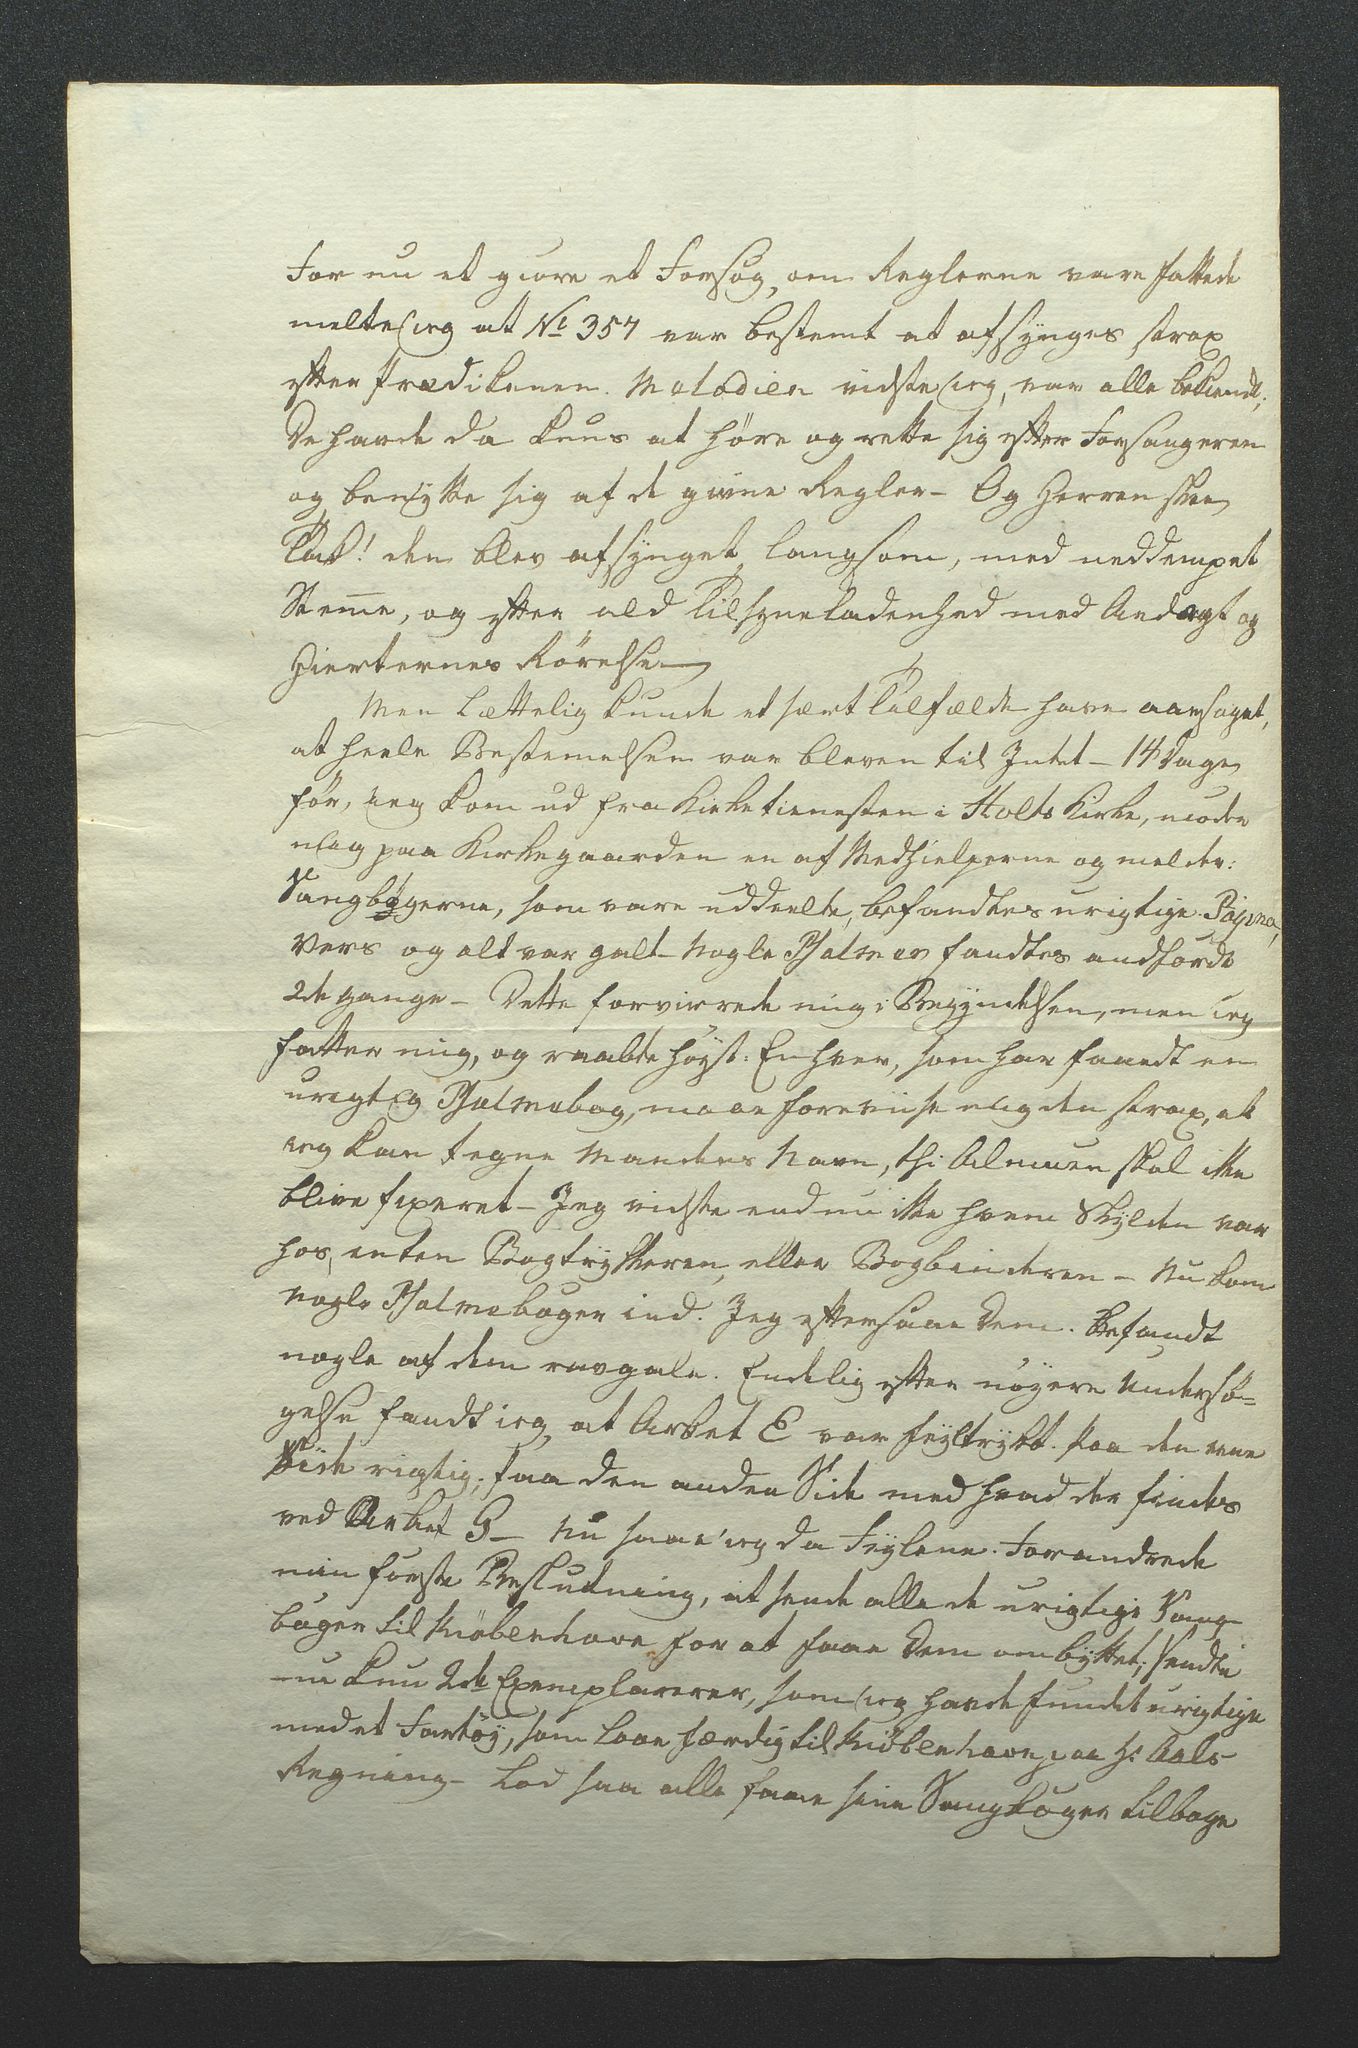 For nu at giøre et Forsøg, om Reglerne vare fattede
melte ieg at No 357 var bestemt at afsynges strax
efter Prædikenen. Melodien vidste ieg, var alle bekiendt;
De havde da kuns at høre og rette sig efter Forsangeren
og benytte sig af de givne Regler – Og Herren skee
Tak! den blev afsynget, langsom, med neddempet
Stem̅e, og efter ald Tilsyneladenhed med Andagt og
Hierternes Rørelse –
Men Lættelig kunde et sært Tilfælde have aarsaget,
at heele Bestemelsen var bleven til Intet – 14 Dage
før, ieg kom ud fra Kirketienesten i Holts Kirke, møder
mig paa Kirkegaarden en af Medhielperne og melder:
Sangbøgerne, som vare uddeelte, befandtes urigtige. Pagina,
Vers og alt var galt – Nogle Psalmer fandtes andførde
2de gange – Dette forvirrede mig i Begyndelsen, men ieg
fatter mig, og raabte høyt: Enhver, som har faaedt en
urigtig Psalmebog, maae foreviise mig den strax, at
ieg kan tegne Mandens Navn, thi Almuen skal ikke
blive fixeret – Jeg vidste endnu ikke hvem Skylden var
hos, enten Bogtrykkeren, eller Bogbinderen – Nu kom
nogle Psalmebøger ind. Jeg eftersaae Dem. Befandt
nogle af dem ravgale. Endelig efter nøyere Undersø-
gelse fandt ieg, at Arket E var feyltrykt. Paa den eene
Side rigtig; paa den anden Side med hvad der findes
ved Arket G – Nu saae ieg da Feylene. Forandrede
min første Beslutning, at sende alle de urigtige Sang-
bøger til Kiøbenhavn for at faae Dem ombyttet; sendte
nu kun 2de Exemplarer, som ieg havde fundet urigtige
med et Fartøy, som laae færdig til Kiøbenhavn paa Hr Aals
Regning – Lod saa alle faae sine Sangbøger tilbage